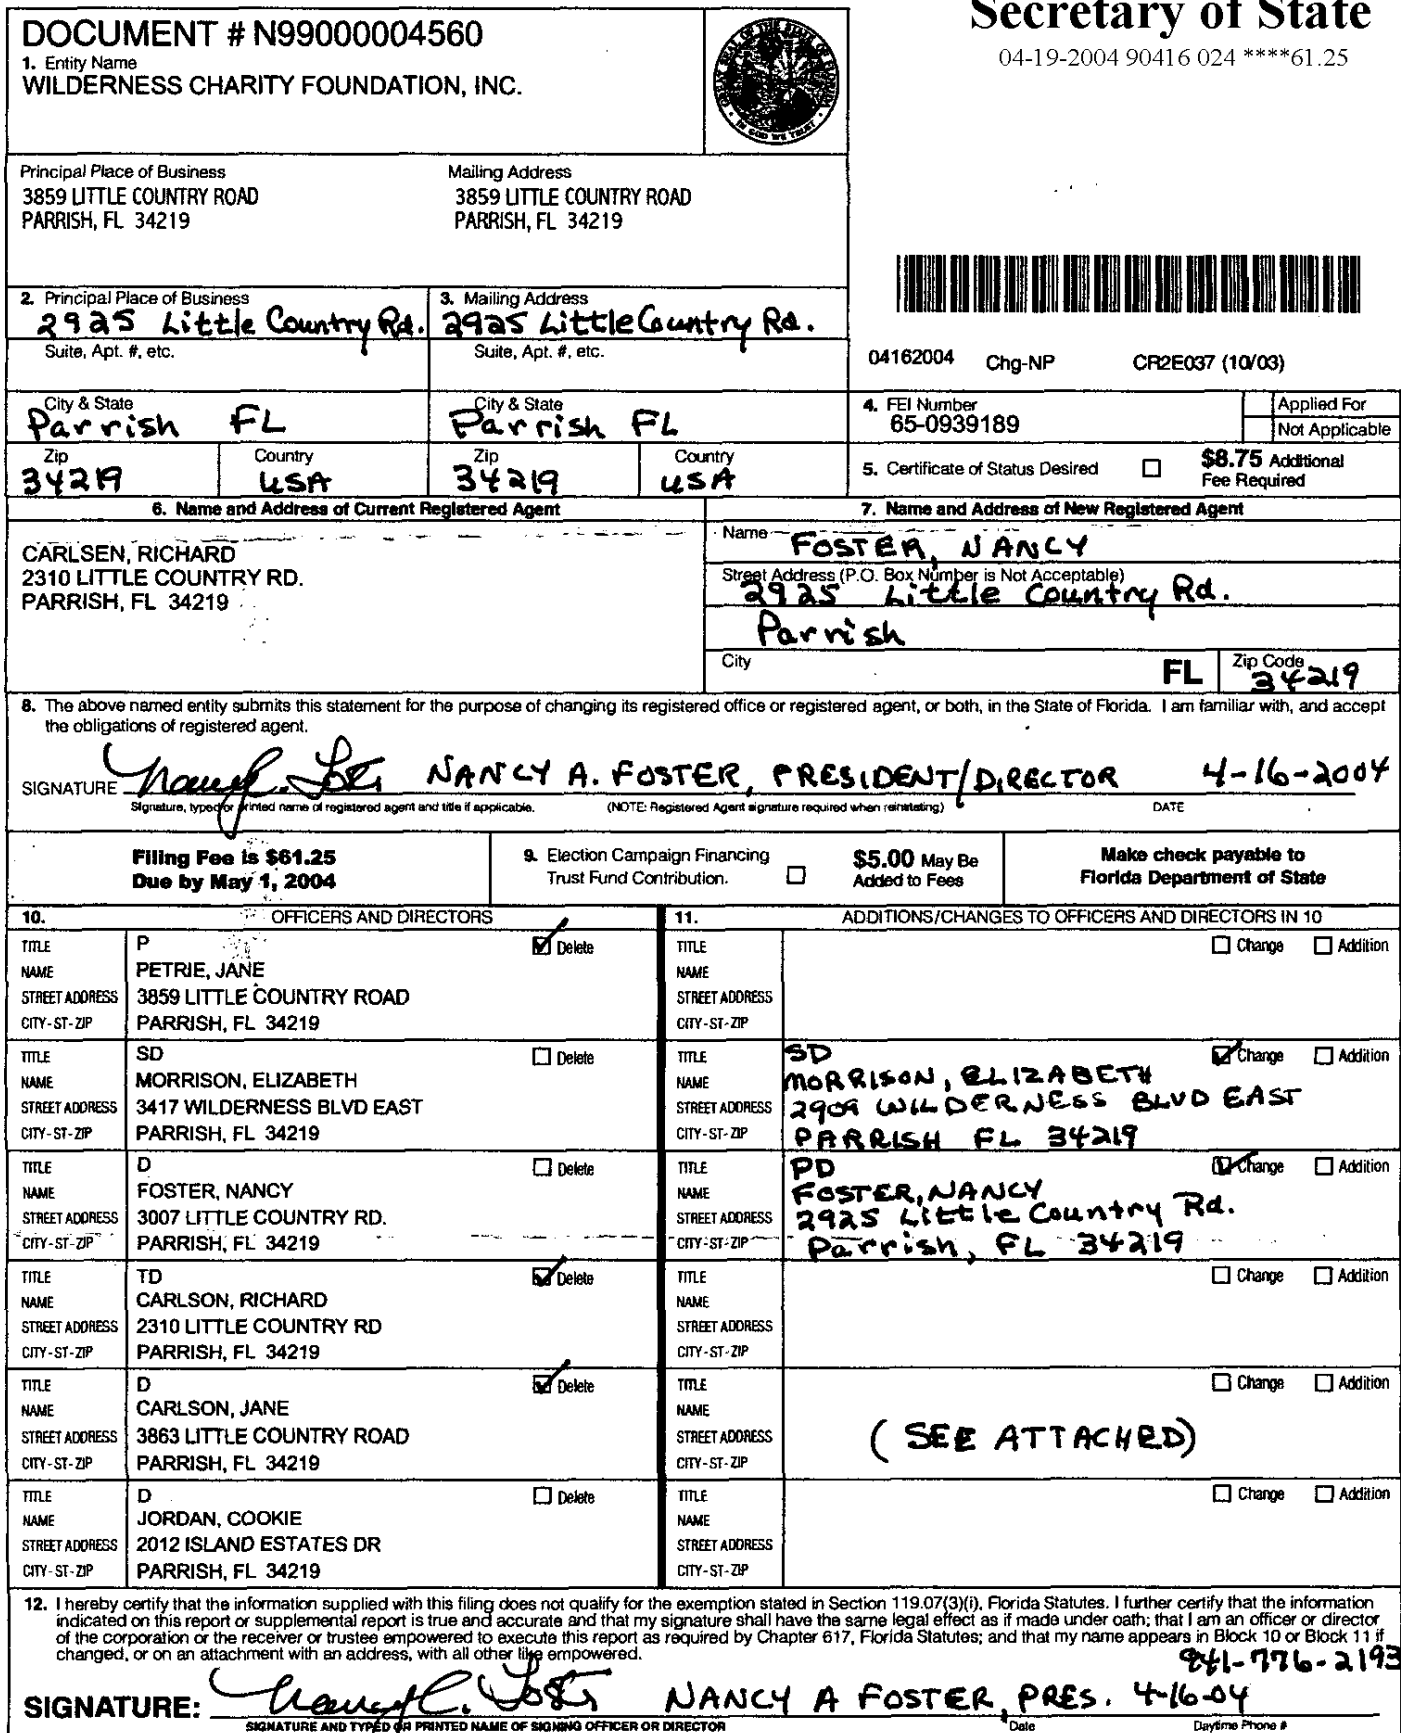 Secretary of State
04-19-2004 90416 024 ****61.25
DOCUMENT # N99000004560
1. Entity Name
WILDERNESS CHARITY FOUNDATION, INC.
Principal Place of Business
3859 LITTLE COUNTRY ROAD
PARRISH, FL 34219
Mailing Address
3859 LITTLE COUNTRY ROAD
PARRISH, FL 34219
2. Principal Place of Business
2925 Little Country Rd.
Suite, Apt. #, etc.
3. Mailing Address
2925 Little Country Rd.
Suite, Apt. #, etc.
04162004 Chg-NP CR2E037 (10/03)
City & State
Parrish FL
City & State
Parrish FL
Zip
34219
Country
USA
Zip
34219
Country
USA
4. FEI Number
65-0939189
Applied For
Not Applicable
5. Certificate of Status Desired
$8.75 Additional
Fee Required
6. Name and Address of Current Registered Agent
CARLSEN, RICHARD
2310 LITTLE COUNTRY RD.
PARRISH, FL 34219
7. Name and Address of New Registered Agent
Name
FOSTER, NANCY
Street Address (P.O. Box Number is Not Acceptable)
2925 Little Country Rd.
Parrish
City
FL
Zip Code
34219
8. The above named entity submits this statement for the purpose of changing its registered office or registered agent, or both, in the State of Florida. I am familiar with, and accept
the obligations of registered agent.
SIGNATURE NANCY A. FOSTER, PRESIDENT/DIRECTOR 4-16-2004
Signature, typed or printed name of registered agent and title if applicable. (NOTE: Registered Agent signature required when reinstating) DATE
Filing Fee is $61.25
Due by May 1, 2004
9. Election Campaign Financing
Trust Fund Contribution.
$5.00 May Be
Added to Fees
Make check payable to
Florida Department of State
10. OFFICERS AND DIRECTORS
11. ADDITIONS/CHANGES TO OFFICERS AND DIRECTORS IN 10
TITLE P Delete
NAME PETRIE, JANE
STREET ADDRESS 3859 LITTLE COUNTRY ROAD
CITY-ST-ZIP PARRISH, FL 34219
TITLE Change Addition
NAME
STREET ADDRESS
CITY-ST-ZIP
TITLE SD Delete
NAME MORRISON, ELIZABETH
STREET ADDRESS 3417 WILDERNESS BLVD EAST
CITY-ST-ZIP PARRISH, FL 34219
TITLE SD Change Addition
NAME MORRISON, ELIZABETH
STREET ADDRESS 2909 WILDERNESS BLVD EAST
CITY-ST-ZIP PARRISH FL 34219
TITLE D Delete
NAME FOSTER, NANCY
STREET ADDRESS 3007 LITTLE COUNTRY RD.
CITY-ST-ZIP PARRISH, FL 34219
TITLE PD Change Addition
NAME FOSTER, NANCY
STREET ADDRESS 2925 Little Country Rd.
CITY-ST-ZIP Parrish, FL 34219
TITLE TD Delete
NAME CARLSON, RICHARD
STREET ADDRESS 2310 LITTLE COUNTRY RD
CITY-ST-ZIP PARRISH, FL 34219
TITLE Change Addition
NAME
STREET ADDRESS
CITY-ST-ZIP
TITLE D Delete
NAME CARLSON, JANE
STREET ADDRESS 3863 LITTLE COUNTRY ROAD
CITY-ST-ZIP PARRISH, FL 34219
TITLE Change Addition
NAME
STREET ADDRESS (SEE ATTACHED)
CITY-ST-ZIP
TITLE D Delete
NAME JORDAN, COOKIE
STREET ADDRESS 2012 ISLAND ESTATES DR
CITY-ST-ZIP PARRISH, FL 34219
TITLE Change Addition
NAME
STREET ADDRESS
CITY-ST-ZIP
12. I hereby certify that the information supplied with this filing does not qualify for the exemption stated in Section 119.07(3)(i), Florida Statutes. I further certify that the information
indicated on this report or supplemental report is true and accurate and that my signature shall have the same legal effect as if made under oath; that I am an officer or director
of the corporation or the receiver or trustee empowered to execute this report as required by Chapter 617, Florida Statutes; and that my name appears in Block 10 or Block 11 if
changed, or on an attachment with an address, with all other like empowered.
941-776-2193
SIGNATURE: NANCY A FOSTER, PRES. 4-16-04
SIGNATURE AND TYPED OR PRINTED NAME OF SIGNING OFFICER OR DIRECTOR Date Daytime Phone #